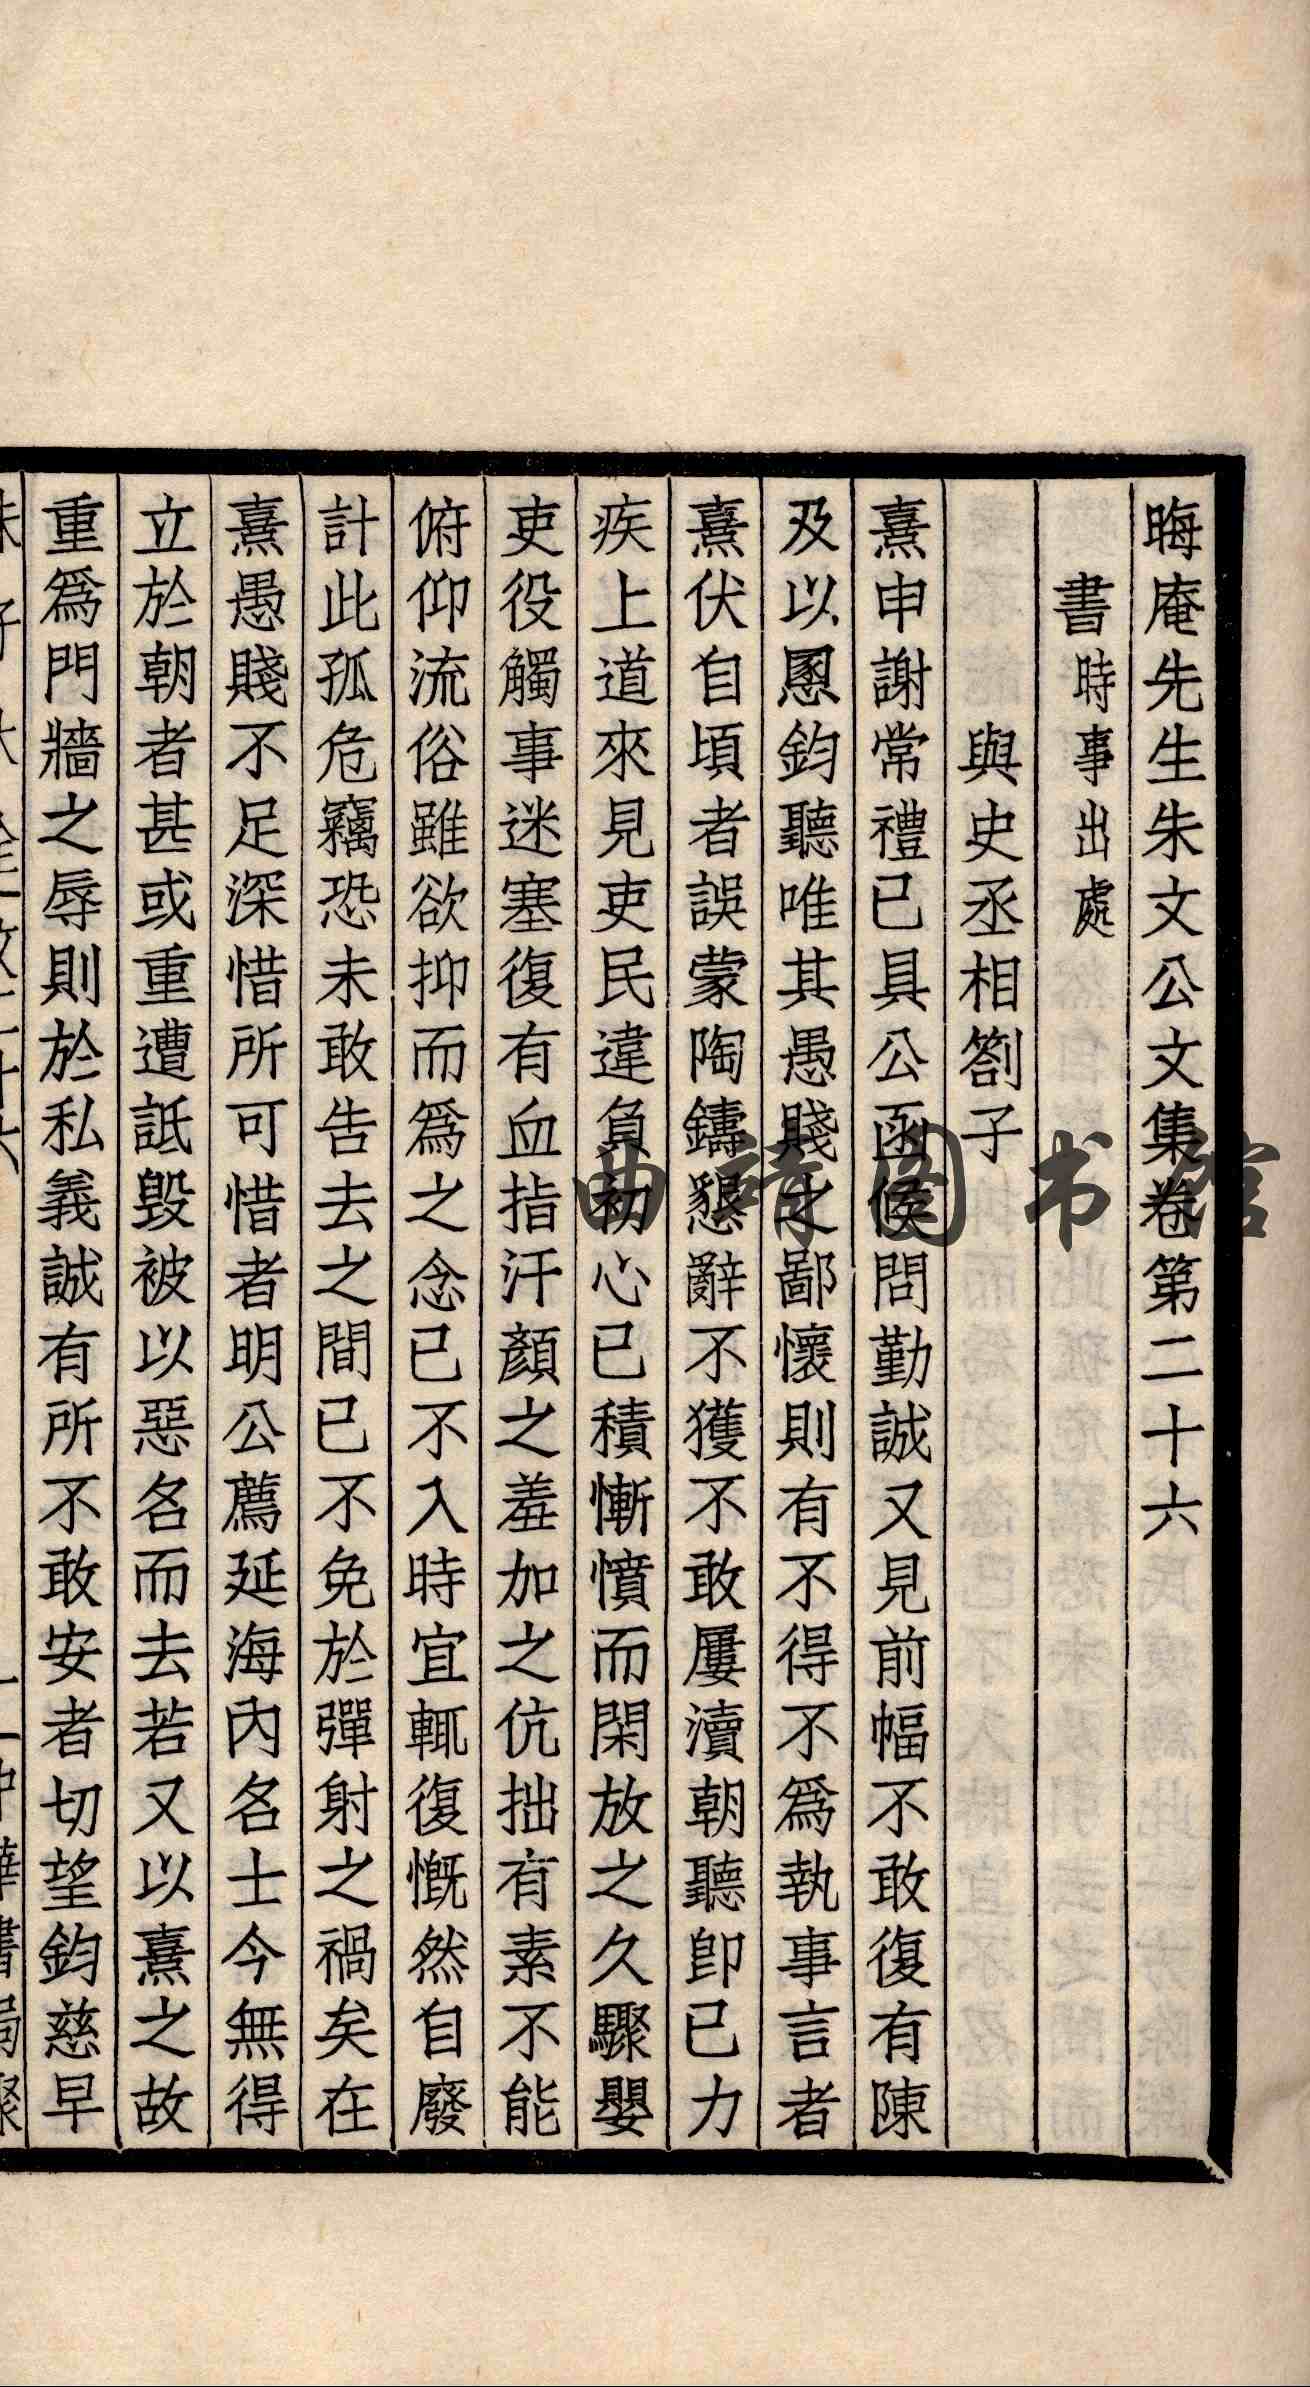 晦庵先生朱文公文集卷第二十六
書時事出處
與史丞相劄子
熹申謝常禮已具公函候問勤誠又見前幅不敢復有陳
及以恩鈞聽唯其愚賤之鄙懷則有不得不為執事言者
熹伏自頃者誤蒙陶鑄懇辭不獲不敢屢瀆朝聽卽已力
疾上道來見吏民違負初心已積慚憤而閑放之久驟嬰
吏役觸事迷塞復有血指汗顏之羞加之伉拙有素不能
俯仰流俗雖欲抑而爲之念已不入時宜輒復慨然自廢
計此孤危竊恐未敢告去之間已不免於彈射之禍矣在
熹愚賤不足深惜所可惜者明公薦延海內名士今無得
立於朝者甚或重遭詆毀被以惡名而去若又以熹之故
重爲門牆之辱則於私義誠有所不敢安者切望鈞慈早
曲靖图书馆